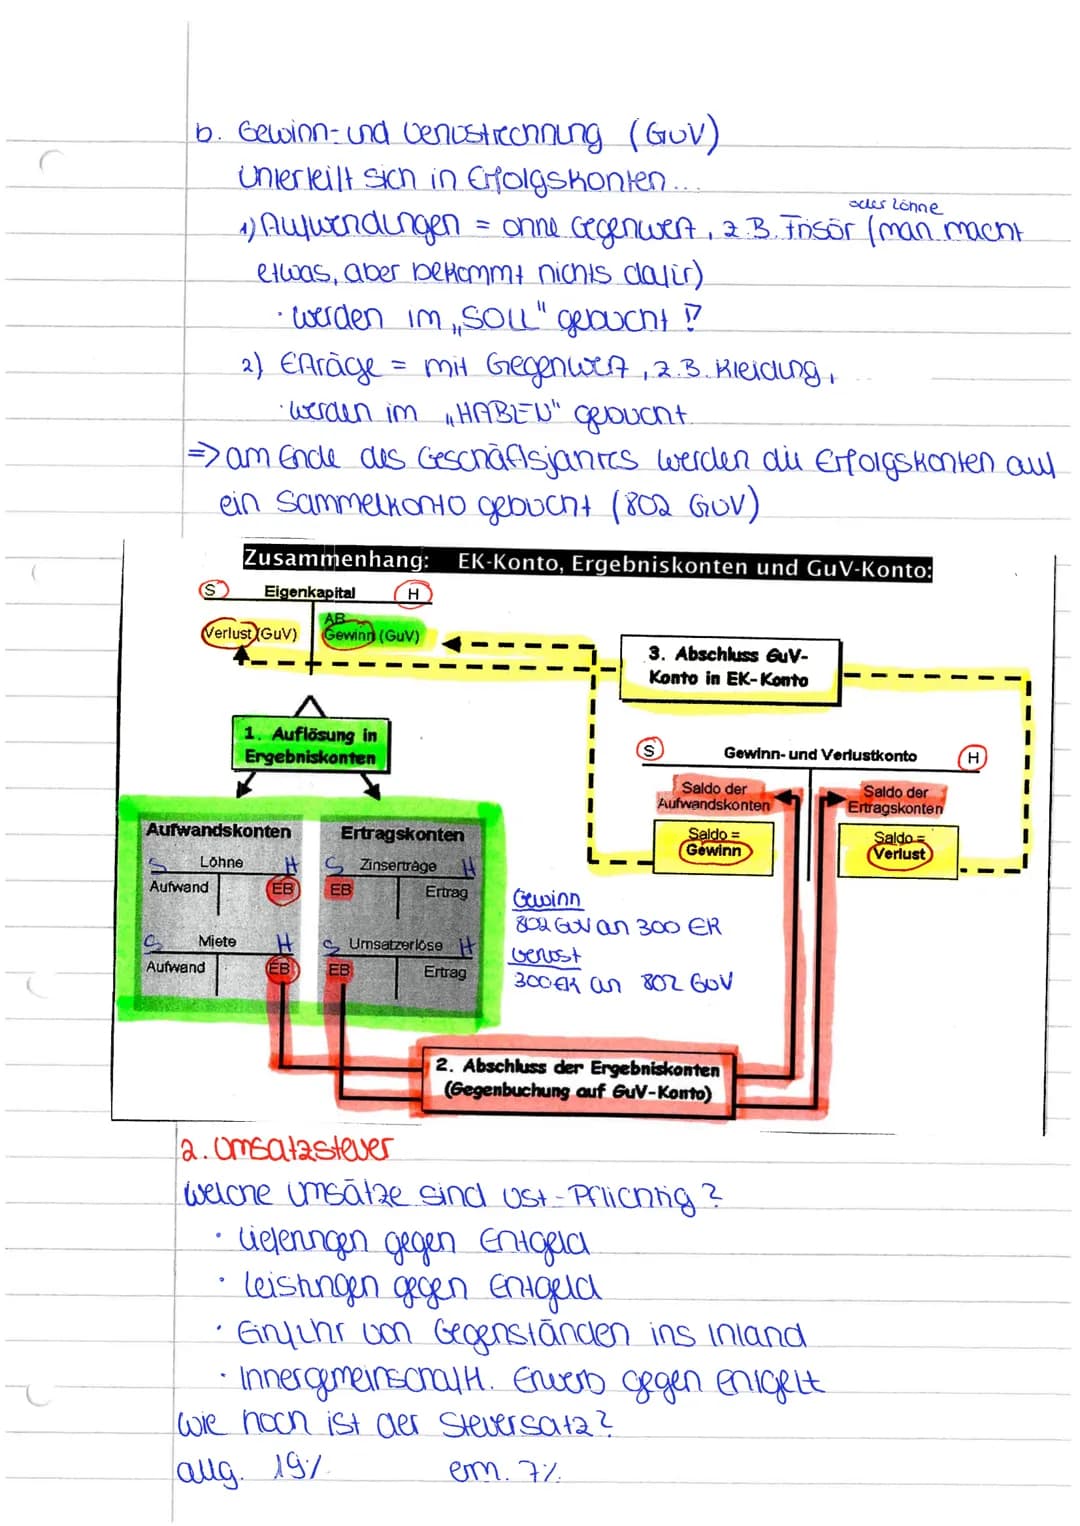 b. Gewinn- und Verlustrechnung (GuV)
Unterteilt sich in Erfolgskonten...
oder Löhne
1) Aufwendungen = ohne Gegenwert, z.B. Frisör (man macht
etwas, aber bekommt nichts dafür)
· werden im „SOLL" gebucht !?
2) Erträge = mit Gegenwert, z.B. Kleidung,
· werden im „HABEN" gebucht
=> am Ende des Geschäftsjahres werden die Erfolgskonten auf
ein Sammelkonto gebucht (802 GuV)
Zusammenhang: EK-Konto, Ergebniskonten und GuV-Konto:
S Eigenkapital H
AB
Verlust (GuV) Gewinn (GuV)
3. Abschluss GuV-
Konto in EK-Konto
1. Auflösung in
Ergebniskonten
S Gewinn- und Verlustkonto H
Saldo der
Aufwandskonten
Saldo der
Ertragskonten
Saldo =
Gewinn
Saldo =
Verlust
Aufwandskonten Ertragskonten
S Löhne H S Zinserträge H
Aufwand EB EB Ertrag
S Miete H S Umsatzerlöse H
Aufwand EB EB Ertrag
Gewinn
802 GuV an 300 EK
Verlust
300 EK an 802 GuV
2. Abschluss der Ergebniskonten
(Gegenbuchung auf GuV-Konto)
2. Umsatzsteuer
Welche Umsätze sind USt-Pflichtig?
· Lieferungen gegen Entgeld
· Leistungen gegen Entgeld
· Einfuhr von Gegenständen ins Inland
· Innergemeinschaftl. Erwerb gegen entgelt
Wie hoch ist der Steuersatz?
allg. 19% erm. 7%